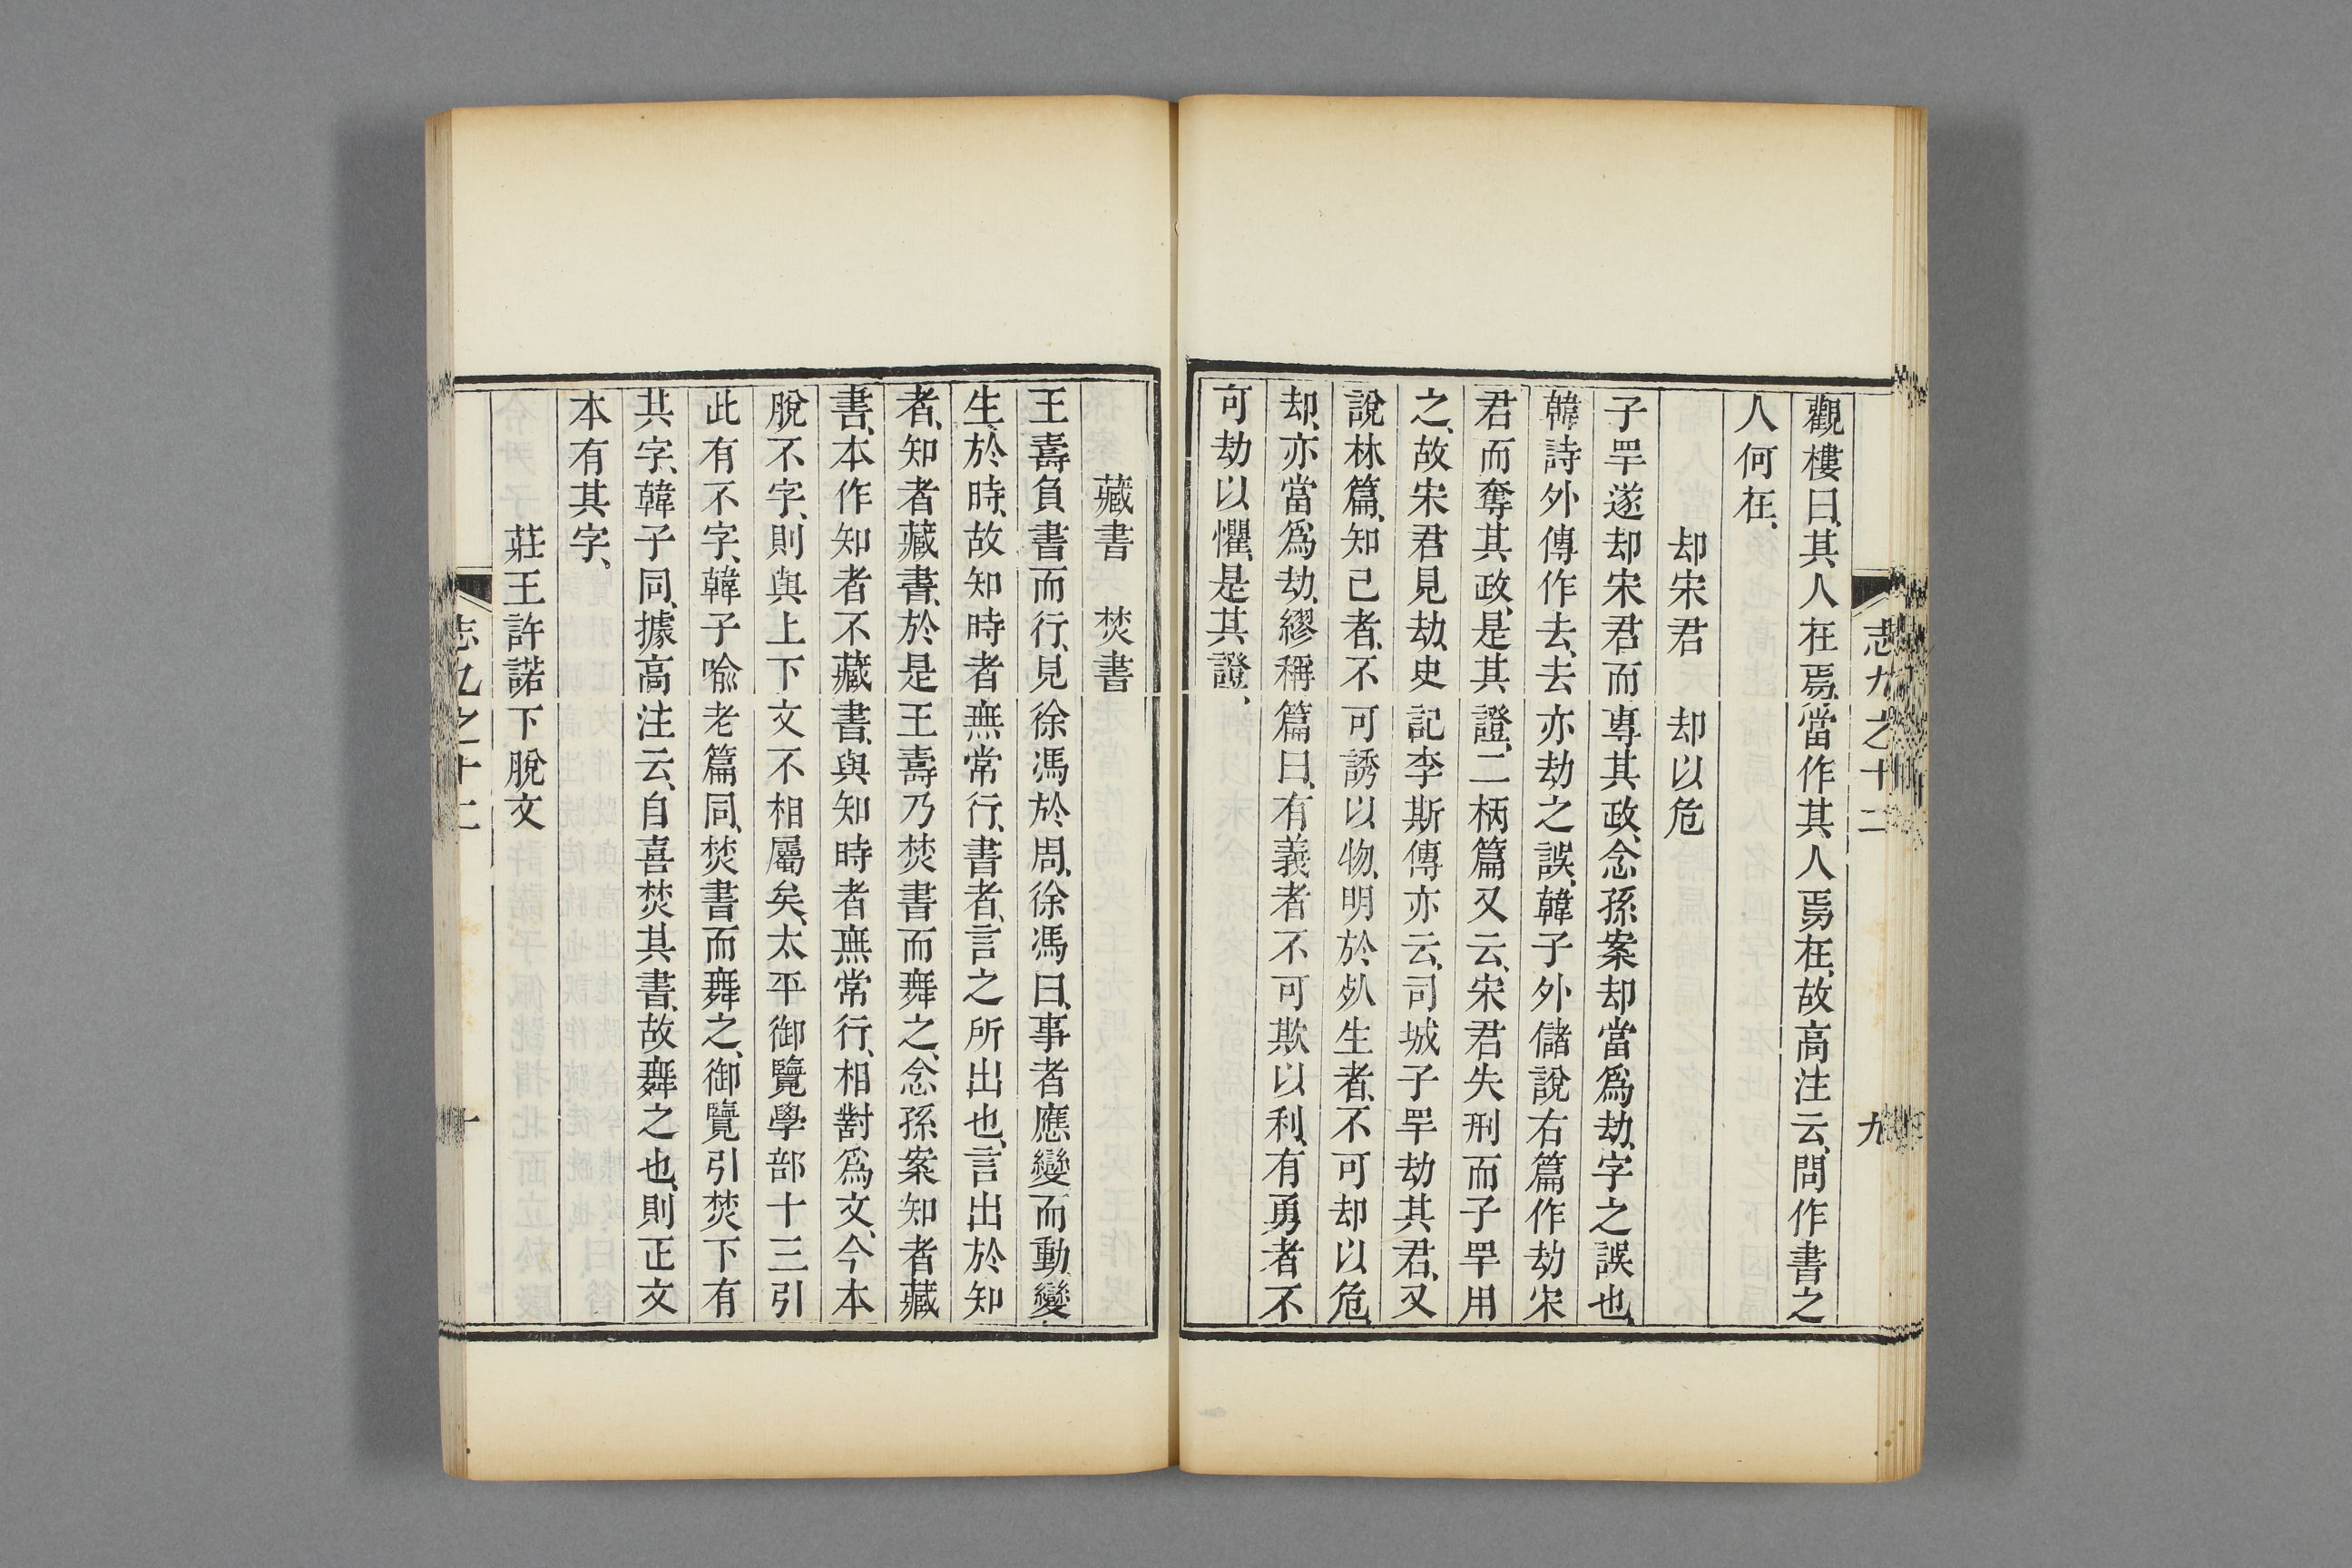 志九之十二
九
觀樓曰、其人在焉、當作其人焉在、故高注云、問作書之
人何在、
却宋君　却以危
子罕遂却宋君而專其政、念孫案却當爲劫、字之誤也、
韓詩外傳作去、去亦劫之誤、韓子外儲說右篇作劫宋
君而奪其政、是其證、二柄篇又云、宋君失刑而子罕用
之、故宋君見劫、史記李斯傳亦云、司城子罕劫其君、又
說林篇、知己者、不可誘以物、明於死生者、不可却以危、
却、亦當爲劫、繆稱篇曰、有義者不可欺以利、有勇者不
可劫以懼、是其證、
藏書　焚書
王壽負書而行、見徐馮於周、徐馮曰、事者應變而動、變
生於時、故知時者無常行、書者、言之所出也、言出於知
者、知者藏書、於是王壽乃焚書而舞之、念孫案知者藏
書、本作知者不藏書、與知時者無常行、相對爲文、今本
脫不字、則與上下文不相屬矣、太平御覽學部十三引
此有不字、韓子喻老篇同、焚書而舞之、御覽引焚下有
其字、韓子同、據高注云、自喜焚其書、故舞之也、則正文
本有其字、
莊王許諾下脫文
志九之十二
十